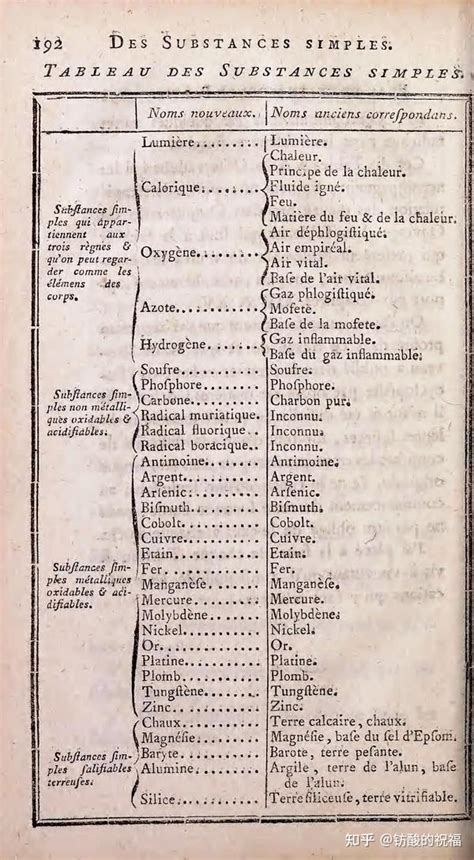 192 DES SUBSTANCES SIMPLES.
TABLEAU DES SUBSTANCES SIMPLES.
Noms nouveaux. Noms anciens correſpondans.
Subſtances ſim-
ples qui appar-
tiennent aux
trois règnes &
qu'on peut regar-
der comme les
élémens des
corps.
Lumière.......... Lumière.
Calorique........ Chaleur.
Principe de la chaleur.
Fluide igné.
Feu.
Matière du feu & de la chaleur.
Oxygène.......... Air déphlogiſtiqué.
Air empiréal.
Air vital.
Baſe de l'air vital.
Azote............ Gaz phlogiſtiqué.
Mofete.
Baſe de la mofete.
Hydrogène........ Gaz inflammable.
Baſe du gaz inflammable.
Subſtances ſim-
ples non métalli-
ques oxidables &
acidifiables.
Soufre........... Soufre.
Phoſphore........ Phoſphore.
Carbone.......... Charbon pur.
Radical muriatique. Inconnu.
Radical fluorique.. Inconnu.
Radical boracique.. Inconnu.
Subſtances ſim-
ples métalliques
oxidables & aci-
difiables.
Antimoine........ Antimoine.
Argent........... Argent.
Arſenic.......... Arſenic.
Biſmuth.......... Biſmuth.
Cobolt........... Cobolt.
Cuivre........... Cuivre.
Etain............ Etain.
Fer.............. Fer.
Manganèſe........ Manganèſe.
Mercure.......... Mercure.
Molybdène........ Molybdène.
Nickel........... Nickel.
Or............... Or.
Platine.......... Platine.
Plomb............ Plomb.
Tungſtène........ Tungſtène.
Zinc............. Zinc.
Subſtances ſim-
ples ſalifiables
terreuſes.
Chaux............ Terre calcaire, chaux.
Magnéſie......... Magnéſie, baſe du ſel d'Epſom.
Baryte........... Barote, terre peſante.
Alumine.......... Argile, terre de l'alun, baſe
de l'alun.
Silice........... Terre ſiliceuſe, terre vitrifiable.
知乎 @钫酸的祝福